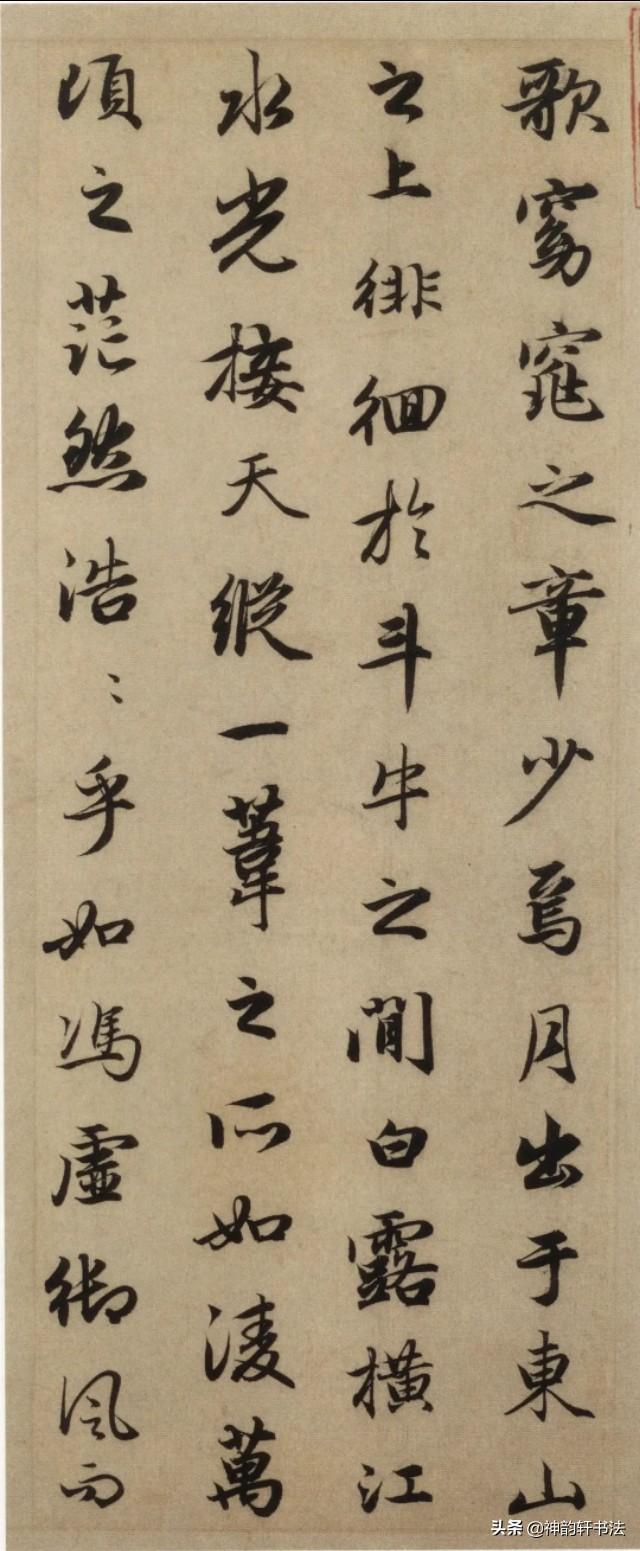 歌窈窕之章少焉月出于東山
之上徘徊於斗牛之間白露横江
水光接天縱一葦之所如淩萬
頃之茫然浩〻乎如馮虛御風而
头条 @神韵轩书法